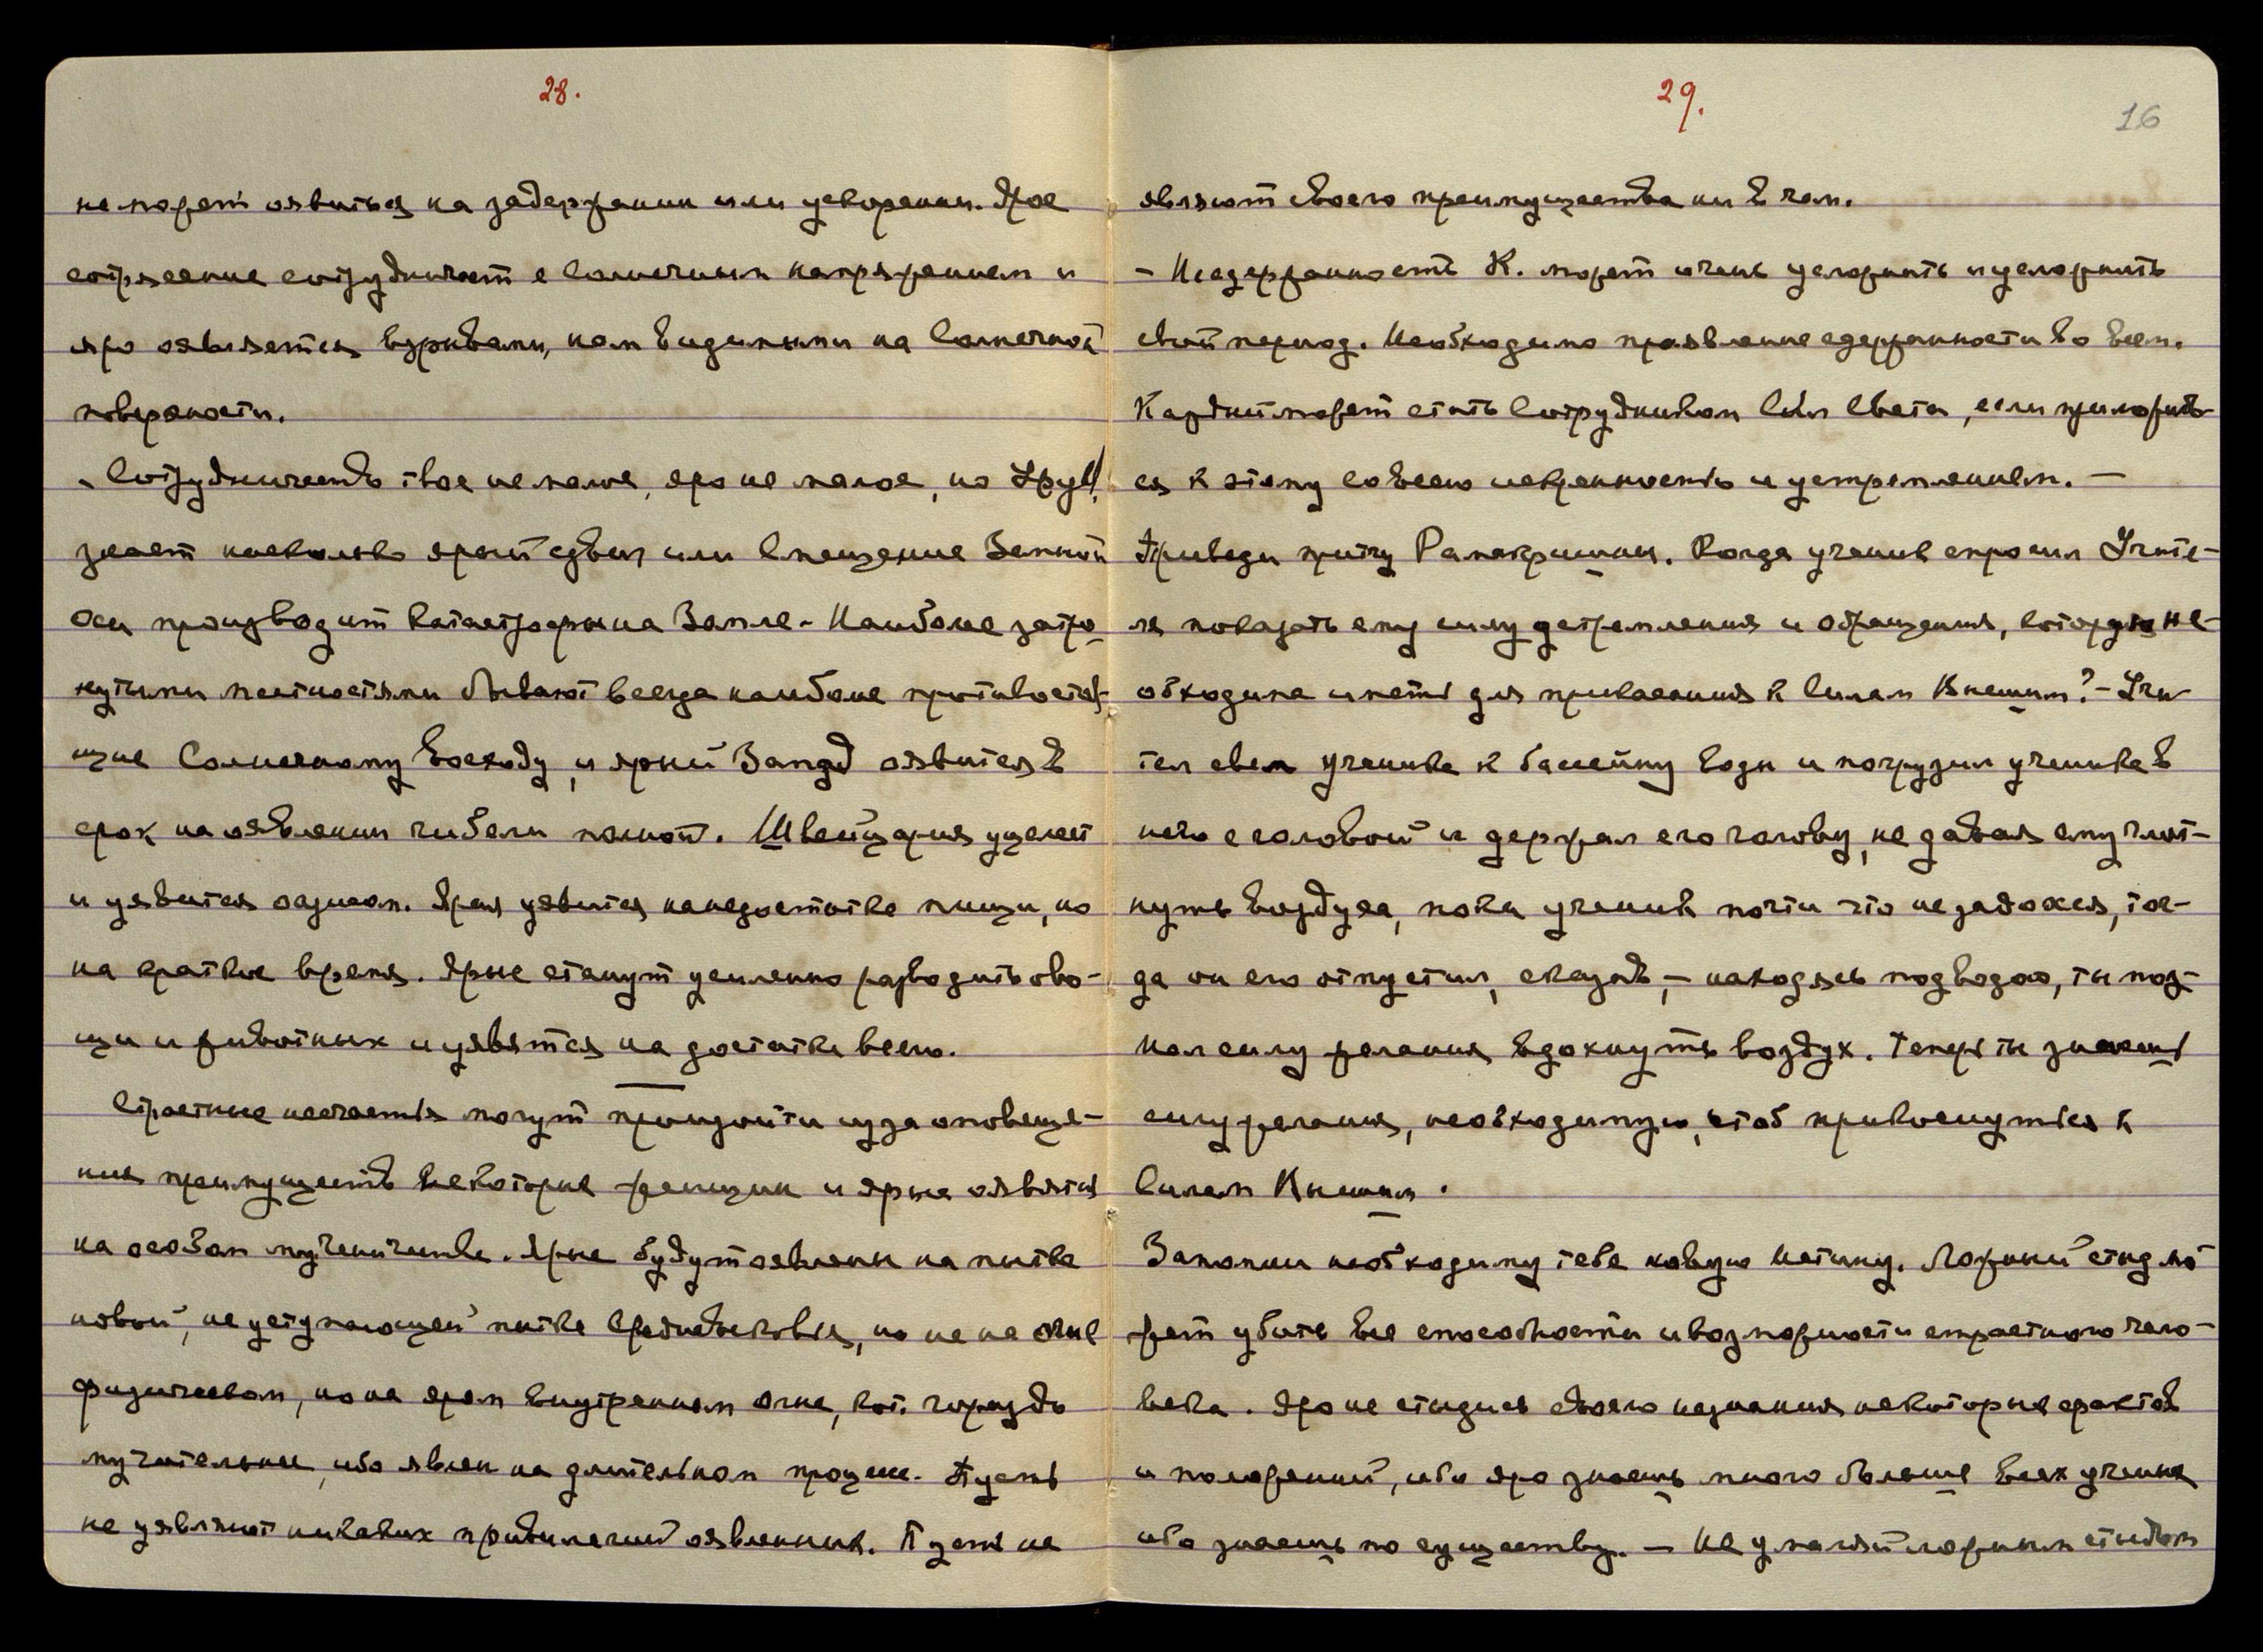 28.
не может оявиться на задержании или ускорении. Ярое
сотрясение сотрудничает с Солнечным напряжением и
яро оявляется взрывами, нам видимыми на Солнечной
поверхности.
- Сотрудничество твое не малое, яро не малое, но Урув.
знает насколько ярый сдвиг или смещение Земной
Оси производит катастрофы на Земле - Наиболее затро-
нутыми местностями бывают всегда наиболее противостоя-
щие Солнечному Восходу, и ярый Запад оявится в
срок на оявлении гибели полной. Швейцария уцелеет
и уявится оазисом. Ярая уявится на недостатке пищи, но
на краткое время. Ярые станут усиленно разводить ово-
щи и животных и уявятся на достатке всего.
Страстные несчастья могут произойти из за оповеще-
ния преимуществ некоторые женщин и ярые оявятся
на особом мученичестве. Ярые будут оявлены на пытке
новой, не уступающей пытке Средневековья, но не на огне
физическом, но на яром внутреннем огне, кот. гораздо
мучительнее, ибо явлен на длительном процессе. Пусть
не уявляют никаких привилегий оявленных. Пусть не
29.
16
являют своего преимущества ни в чем.
- Несдержанность К. может очень усложнить и усложнить
свой период. Необходимо проявление сдержанности во всем.
Каждый может стать Сотрудником Сил Света, если приложить-
ся к этому со всею искренностью и устремлением. -
Приведи притчу Рамакришны. Когда ученик спросил Учите-
ля показать ему силу устремления и обращения, которую не-
обходимо иметь для прикасания к Силам Высшим? - Учи-
тель свел ученика к бассейну воды и погрузил ученика в
него с головой и держал его голову, не давая ему глот-
нуть воздуха, пока ученик почти что не задохся, тог-
да он его отпустил, сказав, - находясь под водою, ты поз-
нал силу желания вдохнуть воздух. Теперь ты знаешь
силу желания, необходимую, чтоб прикоснуться к
Силам Высшим.
Запомни необходимую тебе новую Истину. Ложный стыд мо-
жет убить все способности и возможности страстного чело-
века. Яро не стыдись своего незнания некоторые фактов
и положений, ибо яро знаешь много больше всех ученых
ибо знаешь по существу. - Не умаляй ложным стыдом